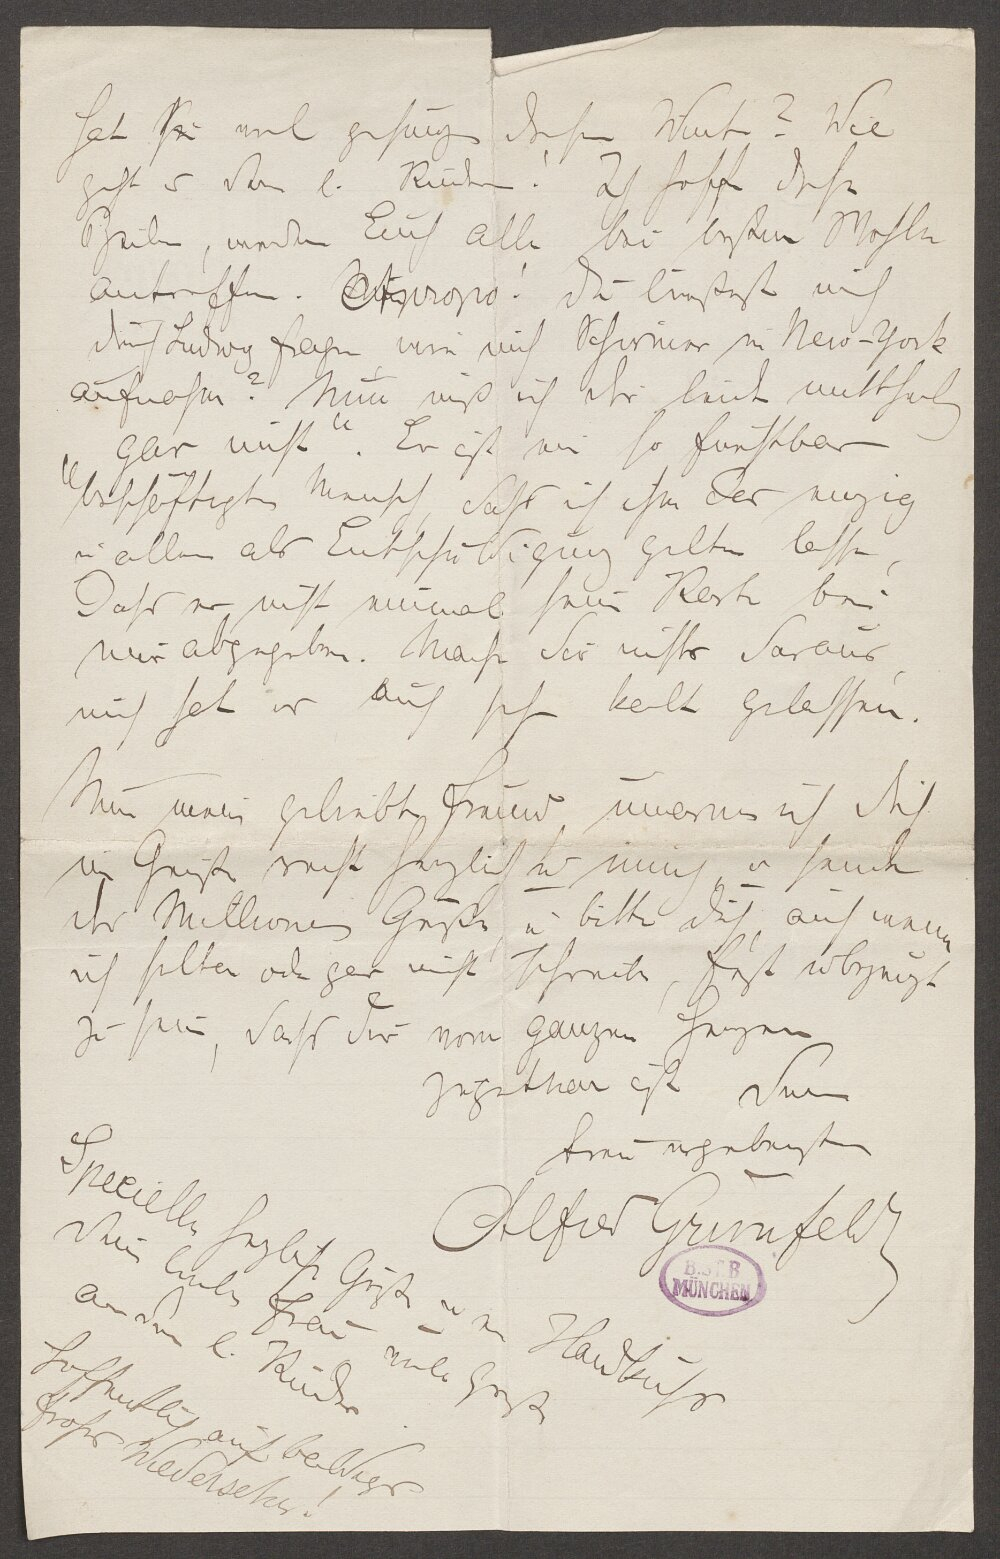 hat sie viel gesungen diesen Winter? Wie
geht es Dein l. Kindern! Ich hoffe diese
Zeilen, werden Euch alle bei bestem Wohle
antreffen. Apropos! Du liessest mich
durch Ludwig fragen, wie mich Schirmer in New-York
aufnahm? Nun muß ich dir leider mittheilen
"gar nicht". Er ist ein so furchtbar
beschäftigter Mensch, dass ich ihm das einzig
u allein als Entschuldigung gelten lasse,
Dass er nicht einmal seine Karte bei
mir abgegeben. Mache dir nichts daraus,
mich hat er auch sehr kalt gelassen.
Nun mein geliebter Freund umarme ich dich
im Geiste recht herzlich u innig, u sende
dir Millionen Grüße u bitte dich, auch wenn
ich selten oder gar nicht schreibe, fest überzeugt
zu sein, dass dir vom ganzen Herzen
zugethan ist Dein
treu ergebenster
Alfred Grünfeld
B.ST.B
MÜNCHEN
Specielle herzliche Grüße u ein Handkuss
Deiner lieben Frau viele Grüße
an dein l. Kinder.
Hoffentlich auf baldiges
frohes Wiedersehen!